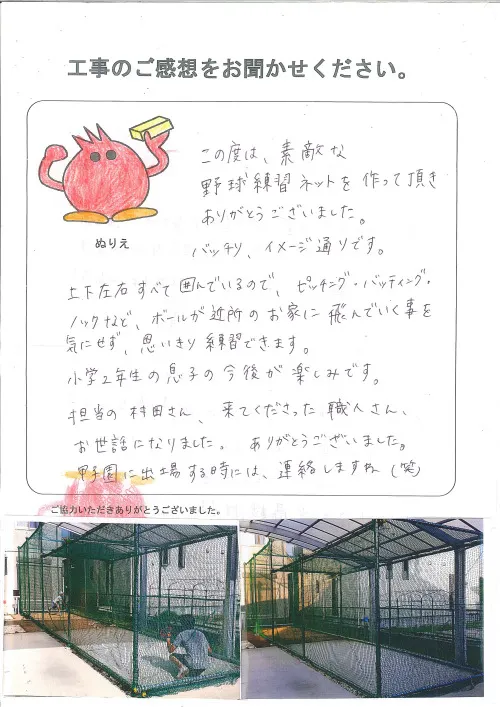 工事のご感想をお聞かせください。
この度は、素敵な
野球練習ネットを作って頂き
ありがとうございました。
バッチリ、イメージ通りです。
ぬりえ
上下左右すべて囲んでいるので、ピッチング・バッティング・
ノックなど、ボールが近所のお家に飛んでいく事を
気にせず、思いきり練習できます。
小学2年生の息子の今後が楽しみです。
担当の村田さん、来てくださった職人さん、
お世話になりました。ありがとうございました。
甲子園に出場する時には、連絡しますね(笑)
ご協力いただきありがとうございました。